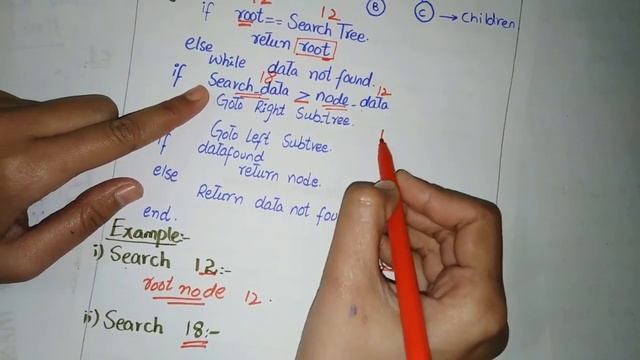 12 12
if root == Search Tree.
return root
B C → Children
else
while data not found.
18 12
if Search_data ≥ node_data
Goto Right Subtree.
Goto Left Subtree.
if datafound
return node.
else
Return data not fou
end.
Example:-
i) Search 12:-
root node 12.
ii) Search 18:-